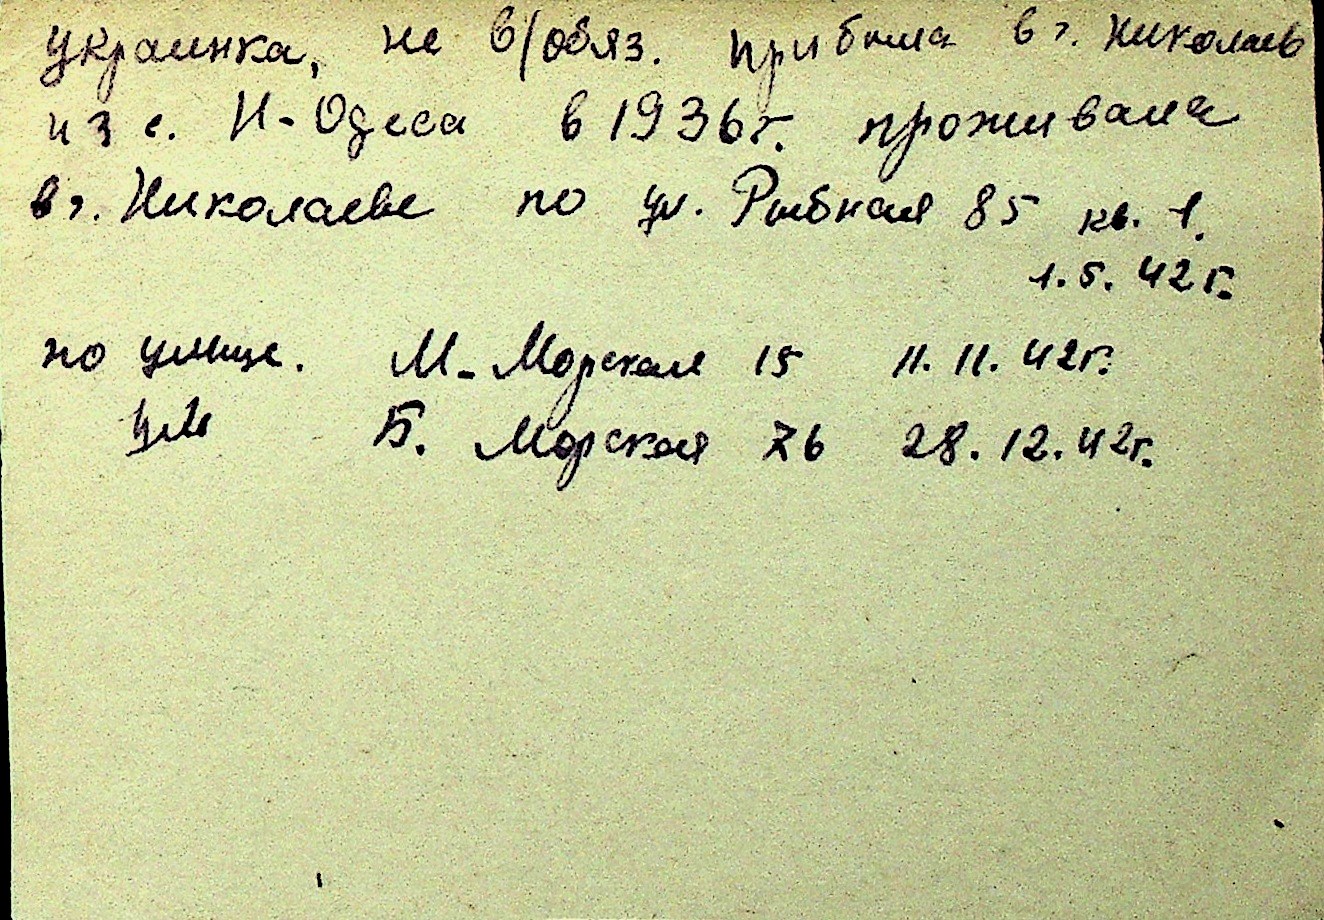 украинка, не в/обяз. прибыла в г. Николаев
из с. Н-Одеса в 1936г. проживала
в г. Николаеве по ул. Рыбная 85 кв. 1.
1.5.42г.
по улице. М-Морская 15 11.11.42г.
ул Б. Морская 76 28.12.42г.